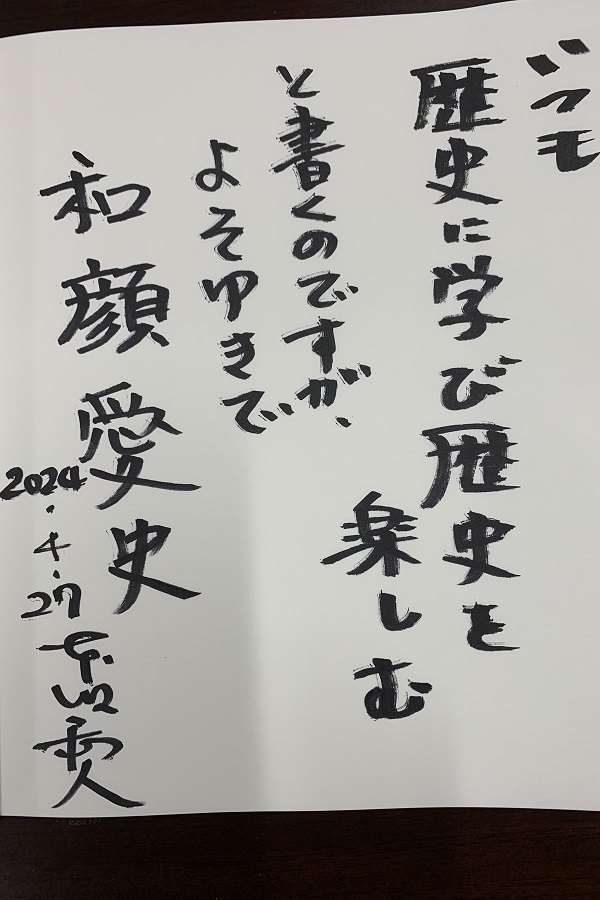 いつも
歴史に学び歴史を
楽しむ
と書くのですが、
よそゆきで
和顔愛史
2024.4.27 本郷和人